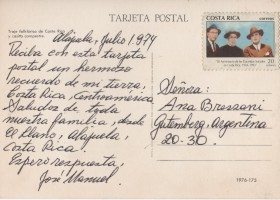 TARJETA POSTAL
Traje folklórico de Costa Rica
Alajuela, Julio 1.974
Reciba con esta tarjeta
postal un hermoso
recuerdo de mi tierra,
Costa Rica, Centroamérica
Saludos de toda
nuestra familia, desde
el Llano, Alajuela,
Costa Rica.
Espero respuesta,
José Manuel.
COSTA RICA
20
Señora:
Ana Bressani
Gutemberg, Argentina
20-30.
1076-172